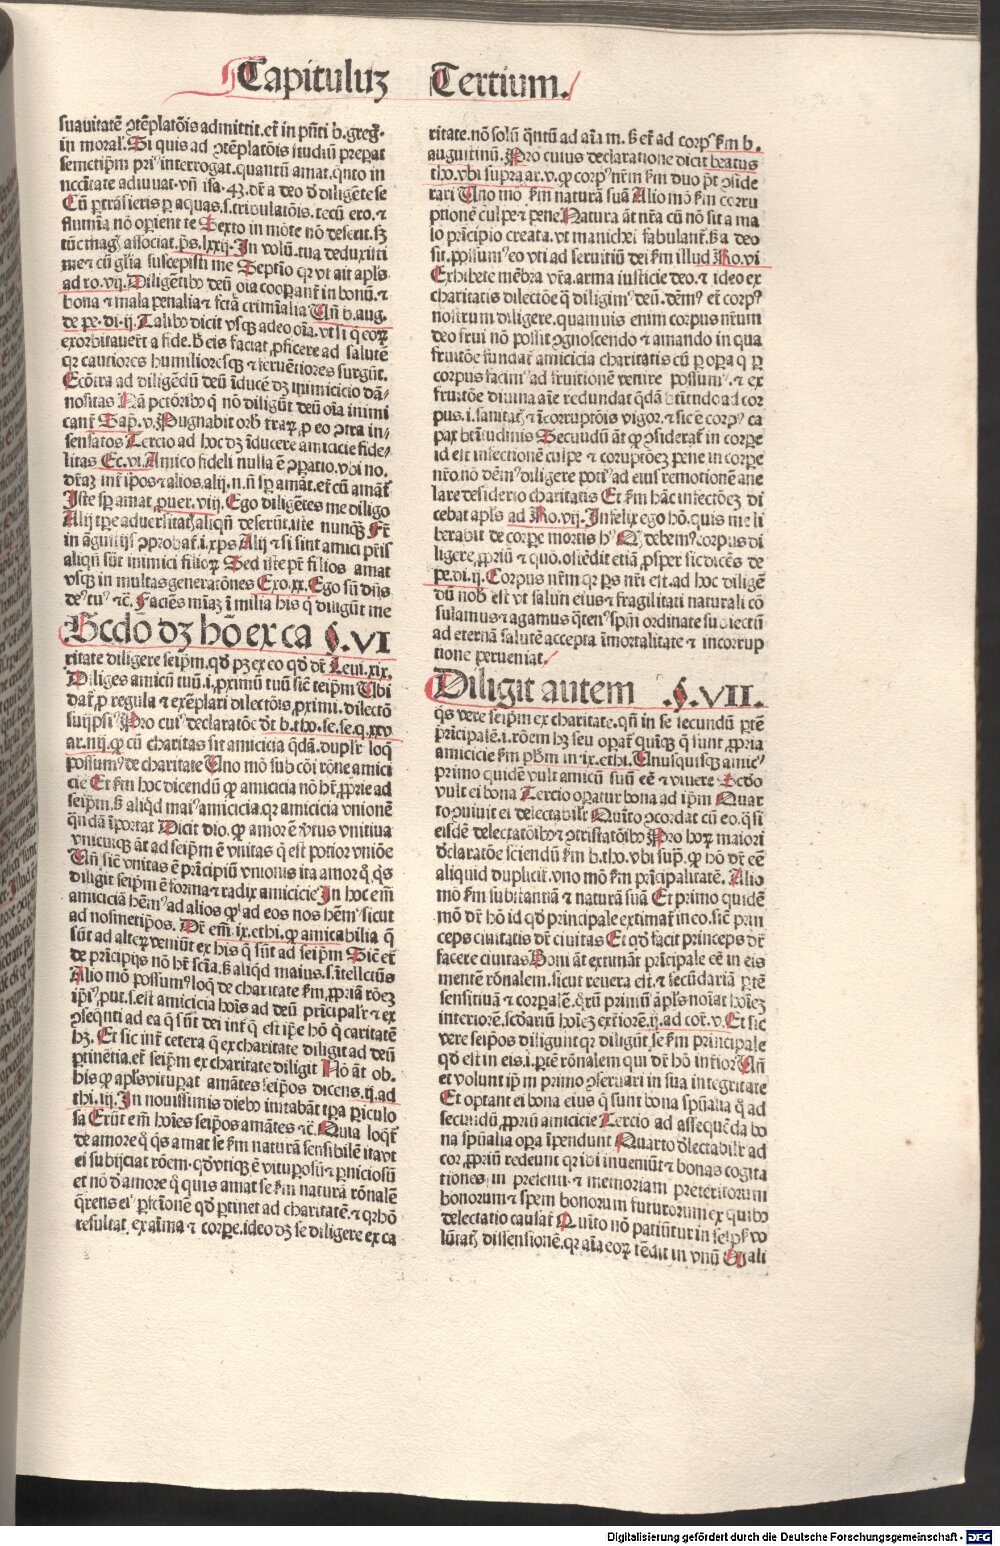 Capituluꝫ Tertium.
suauitatē ꝯtēplatōis admittit.et̄ in pn̄ti b.greg̉.
in moral̉. Si quis ad ꝯtēplatōis studiū prepat
semetip̄m pri⁹ interrogat.quantū amat.qnto in
ncc̄itate adiuuat.vn̄ isa.43.dr̄ a deo d̄ diligēte se
Cū ꝑtrāsieris ꝑ aquas.s.tribulatōis.tecū ero.⁊
flumīa nō oꝑient te Sexto in mōte nō deserit.sꝫ
tūc mag̉ associat.ps̄.lxxij.In volū.tua deduxisti
me⁊ cū gl̄ia suscepisti me Septīo qꝛ vt ait apl̄s
ad ro.vij.Diligētibꝰ deū oīa cooꝑant̄ in bonū.⁊
bona ⁊ mala penalia⁊ fctā crimīalia Un̄ b.aug.
de pe.di.ij.Talibꝰ dicit vsqꝫ adeo oīa.vt si q̄ eoꝝ
exorbitauerit a fide.h̄ eis faciat ꝓficere ad salutē
qꝛ cautiores humilioresqꝫ ⁊ feruētiores surgūt.
Ecōtra ad diligēdū deū īducere dꝫ inimicicie dā⸗
nositas Nā pctōribꝰ q̄ nō diligūt deū oīa inimi
cant̄ Sap̄.v.Pugnabit orb̄ traꝝ ꝓ eo ꝯtra in⸗
sensatos Tercio ad hoc dꝫ īducere amicicie fide⸗
litas Ec.vi.Amico fideli nulla ē ꝯꝑatio.vbi no.
in ānguStijs ꝯprobat̄.i.xp̄s Alij ⁊ si sint amici pr̄is
aliqn̄ sūt inimici filioꝝ Sed iste pr̄ filios amat
vsqꝫ in multas generatōnes Exo.xx.Ego sū dn̄s
de⁹tu⁹ ⁊c̄.Faciēs mīaꝫ ī milia his q̄ diligūt me
Scd̄o dꝫ hō ex ca §.VI
ritate diligere seip̄m.qd̄ pꝫ ex eo qd̄ dr̄ Leui.xix.
Diliges amicū tuū.i.ꝓximū tuū sic̄ teip̄m Ubi
dat̄ ꝓ regula ⁊ exēplari dilectōis ꝓximi.dilectō
suiip̄si⁹ Pro cui⁹ declaratōe dr̄ b.tho.se.se.q.xxv
ar.iiij.ꝙ cū charitas sit amicicia q̄dā.duplr̄ loq̄
possum⁹de charitate Uno mō sub cōi rōne amici
cie Et ẜm hoc dicendū ꝙ amicicia nō ht̄ ꝓprie ad
seip̄m.ẞ aliqd mai⁹amicicia.qꝛ amicicia vnionē
qn̄dā īportat Dicit dio.ꝙ amor ē v̄tus vnitiua
vnicuiqꝫ āt ad seip̄m ē vnitas q̄ est potior vniōe
Un̄ sic̄ vnitas ē prīcipiū vnionis ita amor q̄ q̄s
diligit seip̄m ē forma⁊ radix amicicie In hoc em̄
amiciciā hēm⁹ad alios ꝙ ad eos nos hēm⁹sicut
ad nosmetip̄os. Dr̄ em̄ ix.ethi.ꝙ amicabilia q̄
sūt ad alteꝝ veniūt ex his q̄ sūt ad seip̄m Sic̄ et̄
de prīcipijs nō ht̄ scīa.ẞ aliqd maius.s.ītellectus
Alio mō possum⁹loq̄ de charitate ẜm ꝓpriā rōeꝫ
ip̄i⁹.put.s.est amicicia hoīs ad deū prīcipalr̄ ⁊ ex
ꝯseqn̄ti ad ea q̄ sūt dei int̄ q̄ est ip̄e hō q̄ caritatē
hꝫ. Et sic int̄ cetera q̄ ex charitate diligit ad deū
ꝑtinētia.et̄ seip̄m ex charitate diligit Nō āt ob.
his ꝙ apl̄svituꝑat amātes seip̄os dicens.ij.ad
thi.iij.In nouissimis diebꝰ instabūt tp̄a ꝑiculo
sa Erūt em̄ hoīes seip̄os amātes ⁊c̄. Quia loqt̄
de amore q̄ q̄s amat se ẜm naturā sensibilē itavt
ei subijciat rōem.qd̄vtiqꝫ ē vituꝑosū⁊ ꝑniciosū
et nō d̄amore q̄ quis amat se ẜm naturā rōnalē
q̄rens ei⁹ ꝑfctīonē qd̄ ꝑtinet ad charitatē.⁊ qꝛhō
resultat ex aīma ⁊ corꝑe.ideo dꝫ se diligere ex ca
ritate.nō solū qn̄tū ad aīa m.ẞ et̄ ad corp⁹ ẜm b.
augustinū.Pro cuius declaratione dicit beatus
tho.vbi supra ar.v.ꝙ corp⁹nr̄m ẜm duo pt̄ ꝯside
rari Uno mō ẜm naturā suā Alio mō ẜm corru
ptionē culpe⁊ pene.Natura āt nr̄a cū nō sit a ma
lo prīcipio creata.vt manichei fabulant̄.ẞ a deo
sit.possum⁹eo vti ad seruitiū dei ẜm illud Ro.vi
Exhibete mēbra vr̄a.arma iusticie deo.⁊ ideo ex
charitatis dilectōe q̄ diligim⁹ deū.dēm⁹ et̄ corp⁹
nostrum diligere.quamuis enim corpus nr̄um
deo frui nō possit ꝯgnoscendo ⁊ amando in qua
fruitōe fundat̄ amicicia charitatis cū ꝑ oꝑa q̄ ꝑ
corpus facim⁹ad fruitionē venire possum⁹.⁊ ex
fruitōe diuina aīe redundat qdā btītudo ad cor
pus.i.sanitat̄ ⁊ īcorruptōis vigor.⁊ sic ē corp⁹ ca
pax btītudinis Secundū āt ꝙ ꝯsiderat̄ in corꝑe
id est infectionē culpe ⁊ coruptōeꝫ pene in corꝑe
nr̄o.nō dēm⁹diligere poti⁹ad eius remotionē ane
lare desiderio charitatis Et ẜm hāc infectōeꝫ di
cebat apl̄s ad Ro.vij.Infelix ego hō.quis me li
berabit de corꝑe mortis h⁹ Qꝫ debem⁹corpus di
ligere ꝓpriū ⁊ quō.ostēdit etiā ꝓsper sic dicēs de
pe.di.ij.Corpus nr̄m qꝛ ps nr̄i est.ad hoc diligē
dū nob̄ est vt saluti eius⁊ fragilitati naturali cō
sulamus⁊ agamus q̄ten⁹ spūi ordinate subiectū
ad eternā salutē accepta īmortalitate ⁊ incorrup
tione perueniat.
Diligit autem §.VII.
q̄s vere seip̄m ex charitate.qn̄ in se secundū ꝑtē
prīcipalē.i.rōem hꝫ seu oꝑat̄ quīqꝫ q̄ sunt ꝓpria
amicicie ẜm ph̄m in ix.ethi.Unusquisqꝫ amic⁹
primo quidē vult amicū suū eē ⁊ viuere Scd̄o
vult ei bona Tercio oꝑatur bona ad ip̄m Quar
to ꝯuiuit ei delectabilr̄ Quīto ꝯcordat cū eo.q̄si
eisdē delectatōibꝰ⁊ ꝯtristatōibꝰ Pro hoꝝ maiori
d̄claratōe sciendū ẜm b.tho.vbi sup̄.ꝙ hō dr̄ eē
aliquid dupliciť.vno mō ẜm prīcipalitatē. Alio
mō ẜm substantiā ⁊ naturā suā Et primo quidē
mō dr̄ hō id qd̄ principale extimat̄ in eo.sic̄ prin
ceps ciuitatis dr̄ ciuitas Et qd̄ facit princeps dr̄
facere ciuitas Boni āt extimāt principale eē in eis
mentē rōnalem.sicut reuera est.⁊ secūdariā ꝑtē
sensitiuā ⁊ corpalē.q̄rū primū apl̄s noīat hoīeꝫ
interiorē.scd̄ariū hoīeꝫ ext̄iorē.ij.ad cor̄.v.Et sic
vere seip̄os diligunt qꝛ diligūt se ẜm principale
qd̄ est in eis.i.ꝑtē rōnalem qui dr̄ hō int̄ior Un̄
et volunt ip̄m primo ꝯseruari in sua integritate
Et optant ei bona eius q̄ sunt bona spūalia q̄ ad
secundū ꝓpriū amicicie Tercio ad assequēda bo
na spūalia oꝑa īpendunt Quarto d̄lectabilr̄ ad
cor ꝓpriū redeunt qꝛ ibi inueniūt⁊ bonas cogita
tiones in presenti.⁊ memoriam preteritorum
bonorum⁊ spem bonorum futurorum ex quibꝰ
delectatio causat̄ Quīto nō patiūtur in seip̄⁹ vo
lūtat̄ dissensionē.qꝛ aīa eoꝝ tēdit in vnū Mali
Digitalisierung gefördert durch die Deutsche Forschungsgemeinschaft · DFG